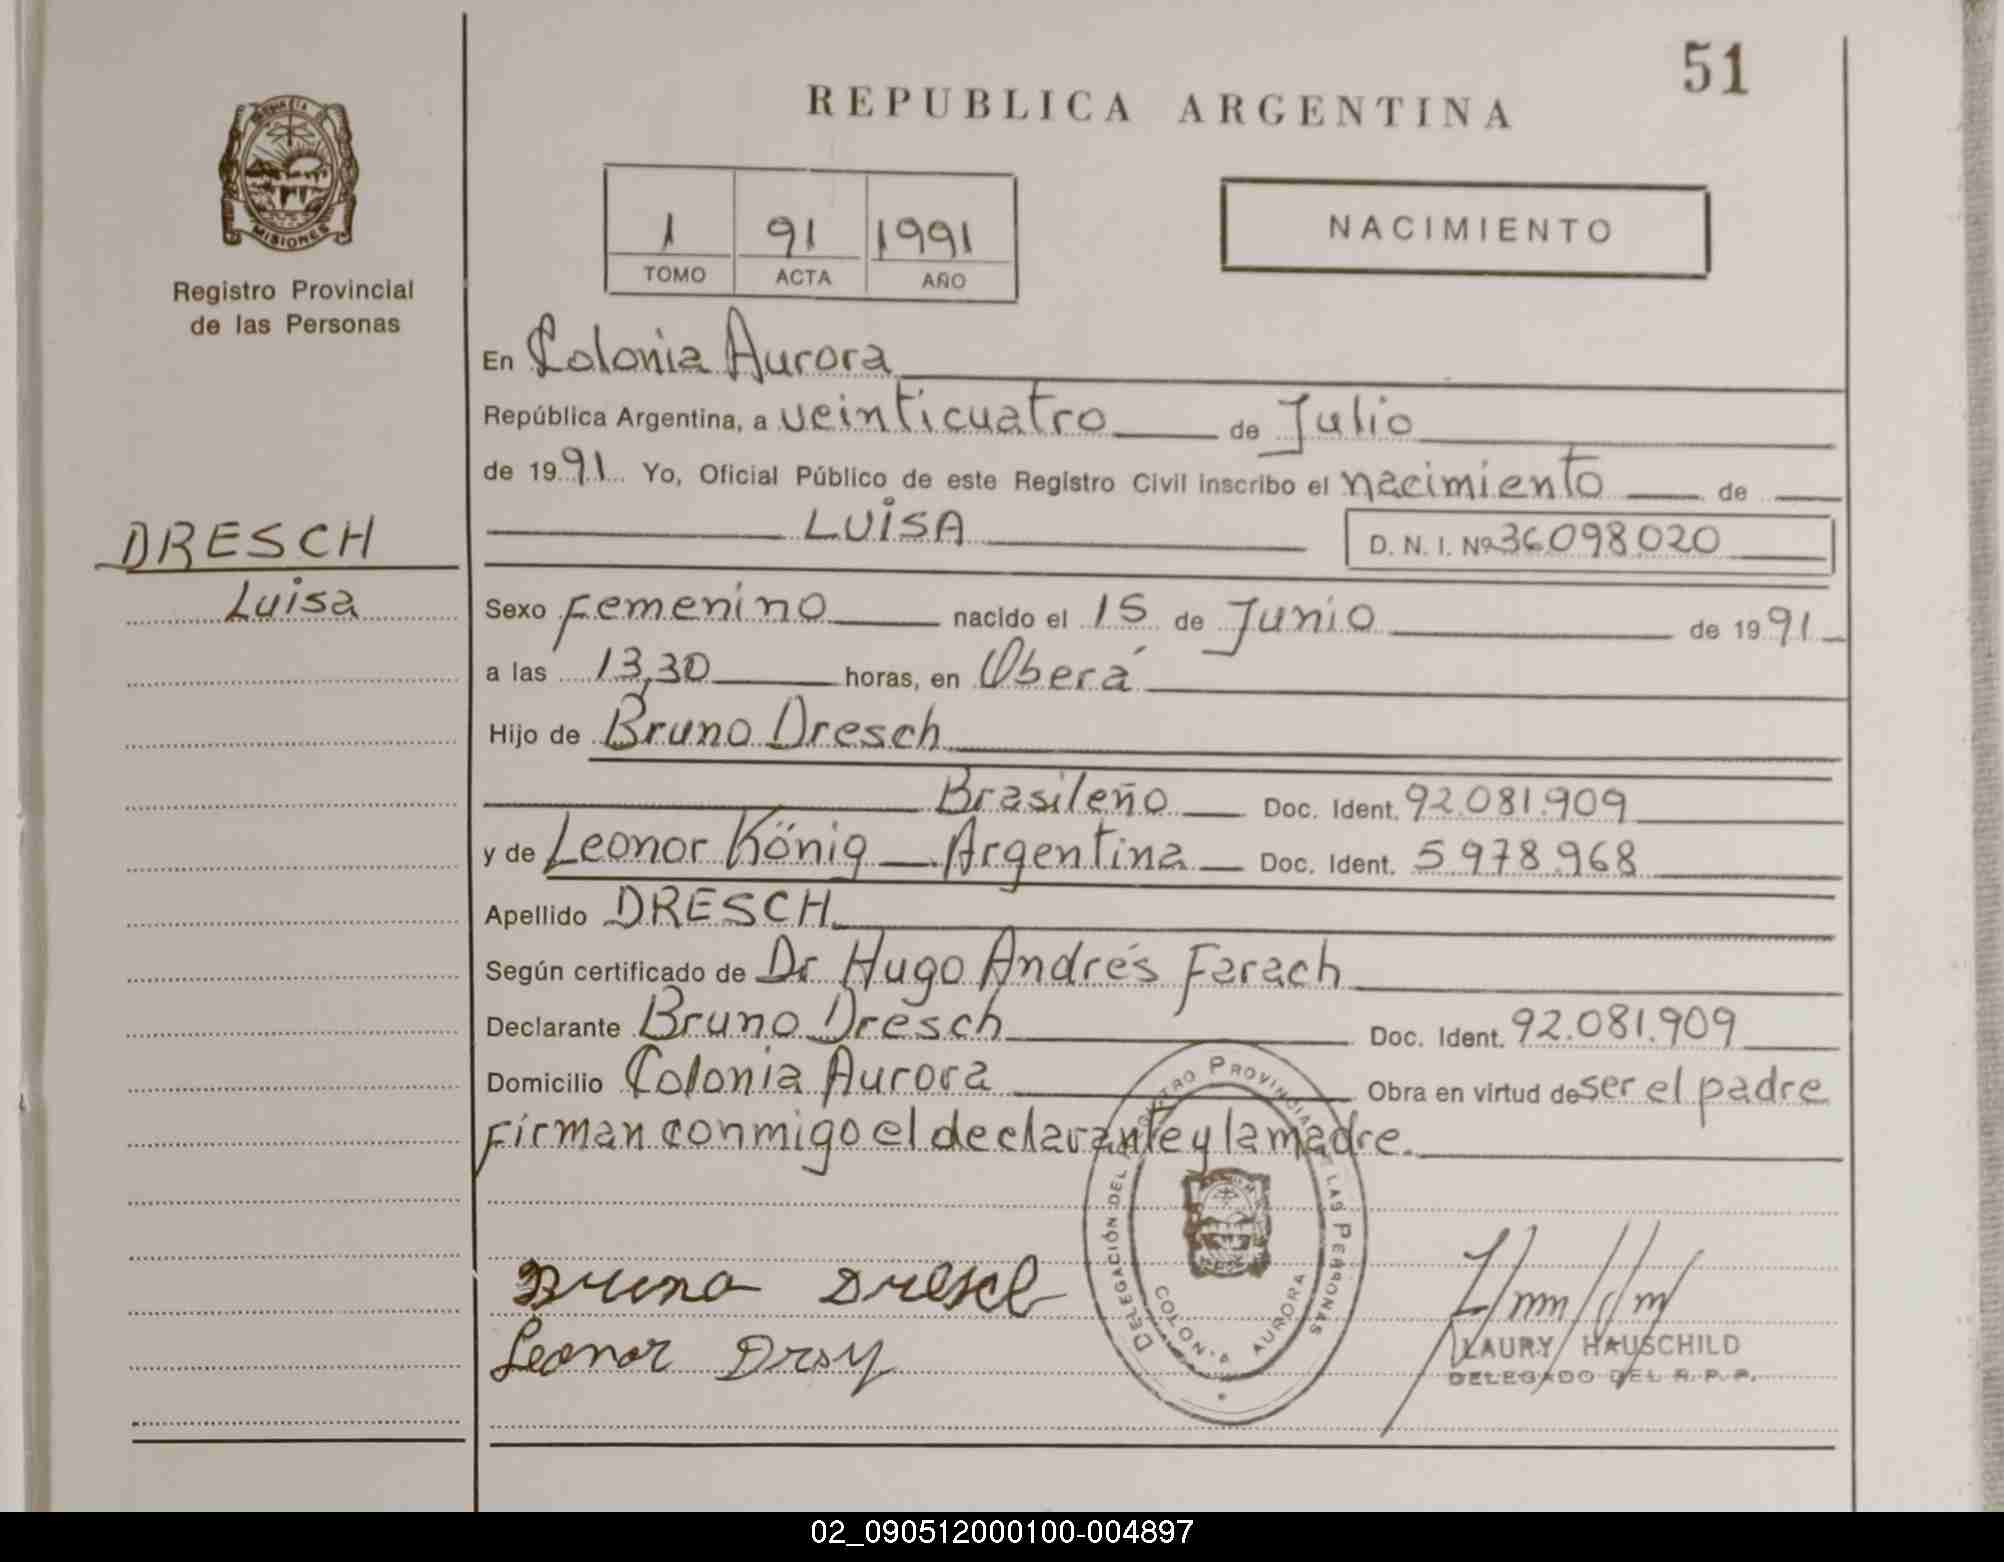 51
REPUBLICA ARGENTINA
MISIONES
Registro Provincial
de las Personas
1 91 1991
TOMO ACTA AÑO
NACIMIENTO
En Colonia Aurora
República Argentina, a veinticuatro de Julio
de 1991 Yo, Oficial Público de este Registro Civil inscribo el nacimiento de
LUISA D. N. I. Nº 36098.020
DRESCH
Luisa
Sexo Femenino nacido el 15 de Junio de 1991
a las 13,30 horas, en Oberá
Hijo de Bruno Dresch
Brasileño Doc. Ident. 92.081.909
y de Leonor König Argentina Doc. Ident. 5978.968
Apellido DRESCH
Según certificado de Dr Hugo Andrés Farach
Declarante Bruno Dresch Doc. Ident. 92.081.909
Domicilio Colonia Aurora Obra en virtud de ser el padre
Firman conmigo el declarante y la madre.
DELEGACIÓN DEL REGISTRO PROVINCIAL DE LAS PERSONAS
COLONIA AURORA
Bruno Dresch
Leonor
LAURY HAUSCHILD
DELEGADO DEL R. P. P.
02_090512000100-004897